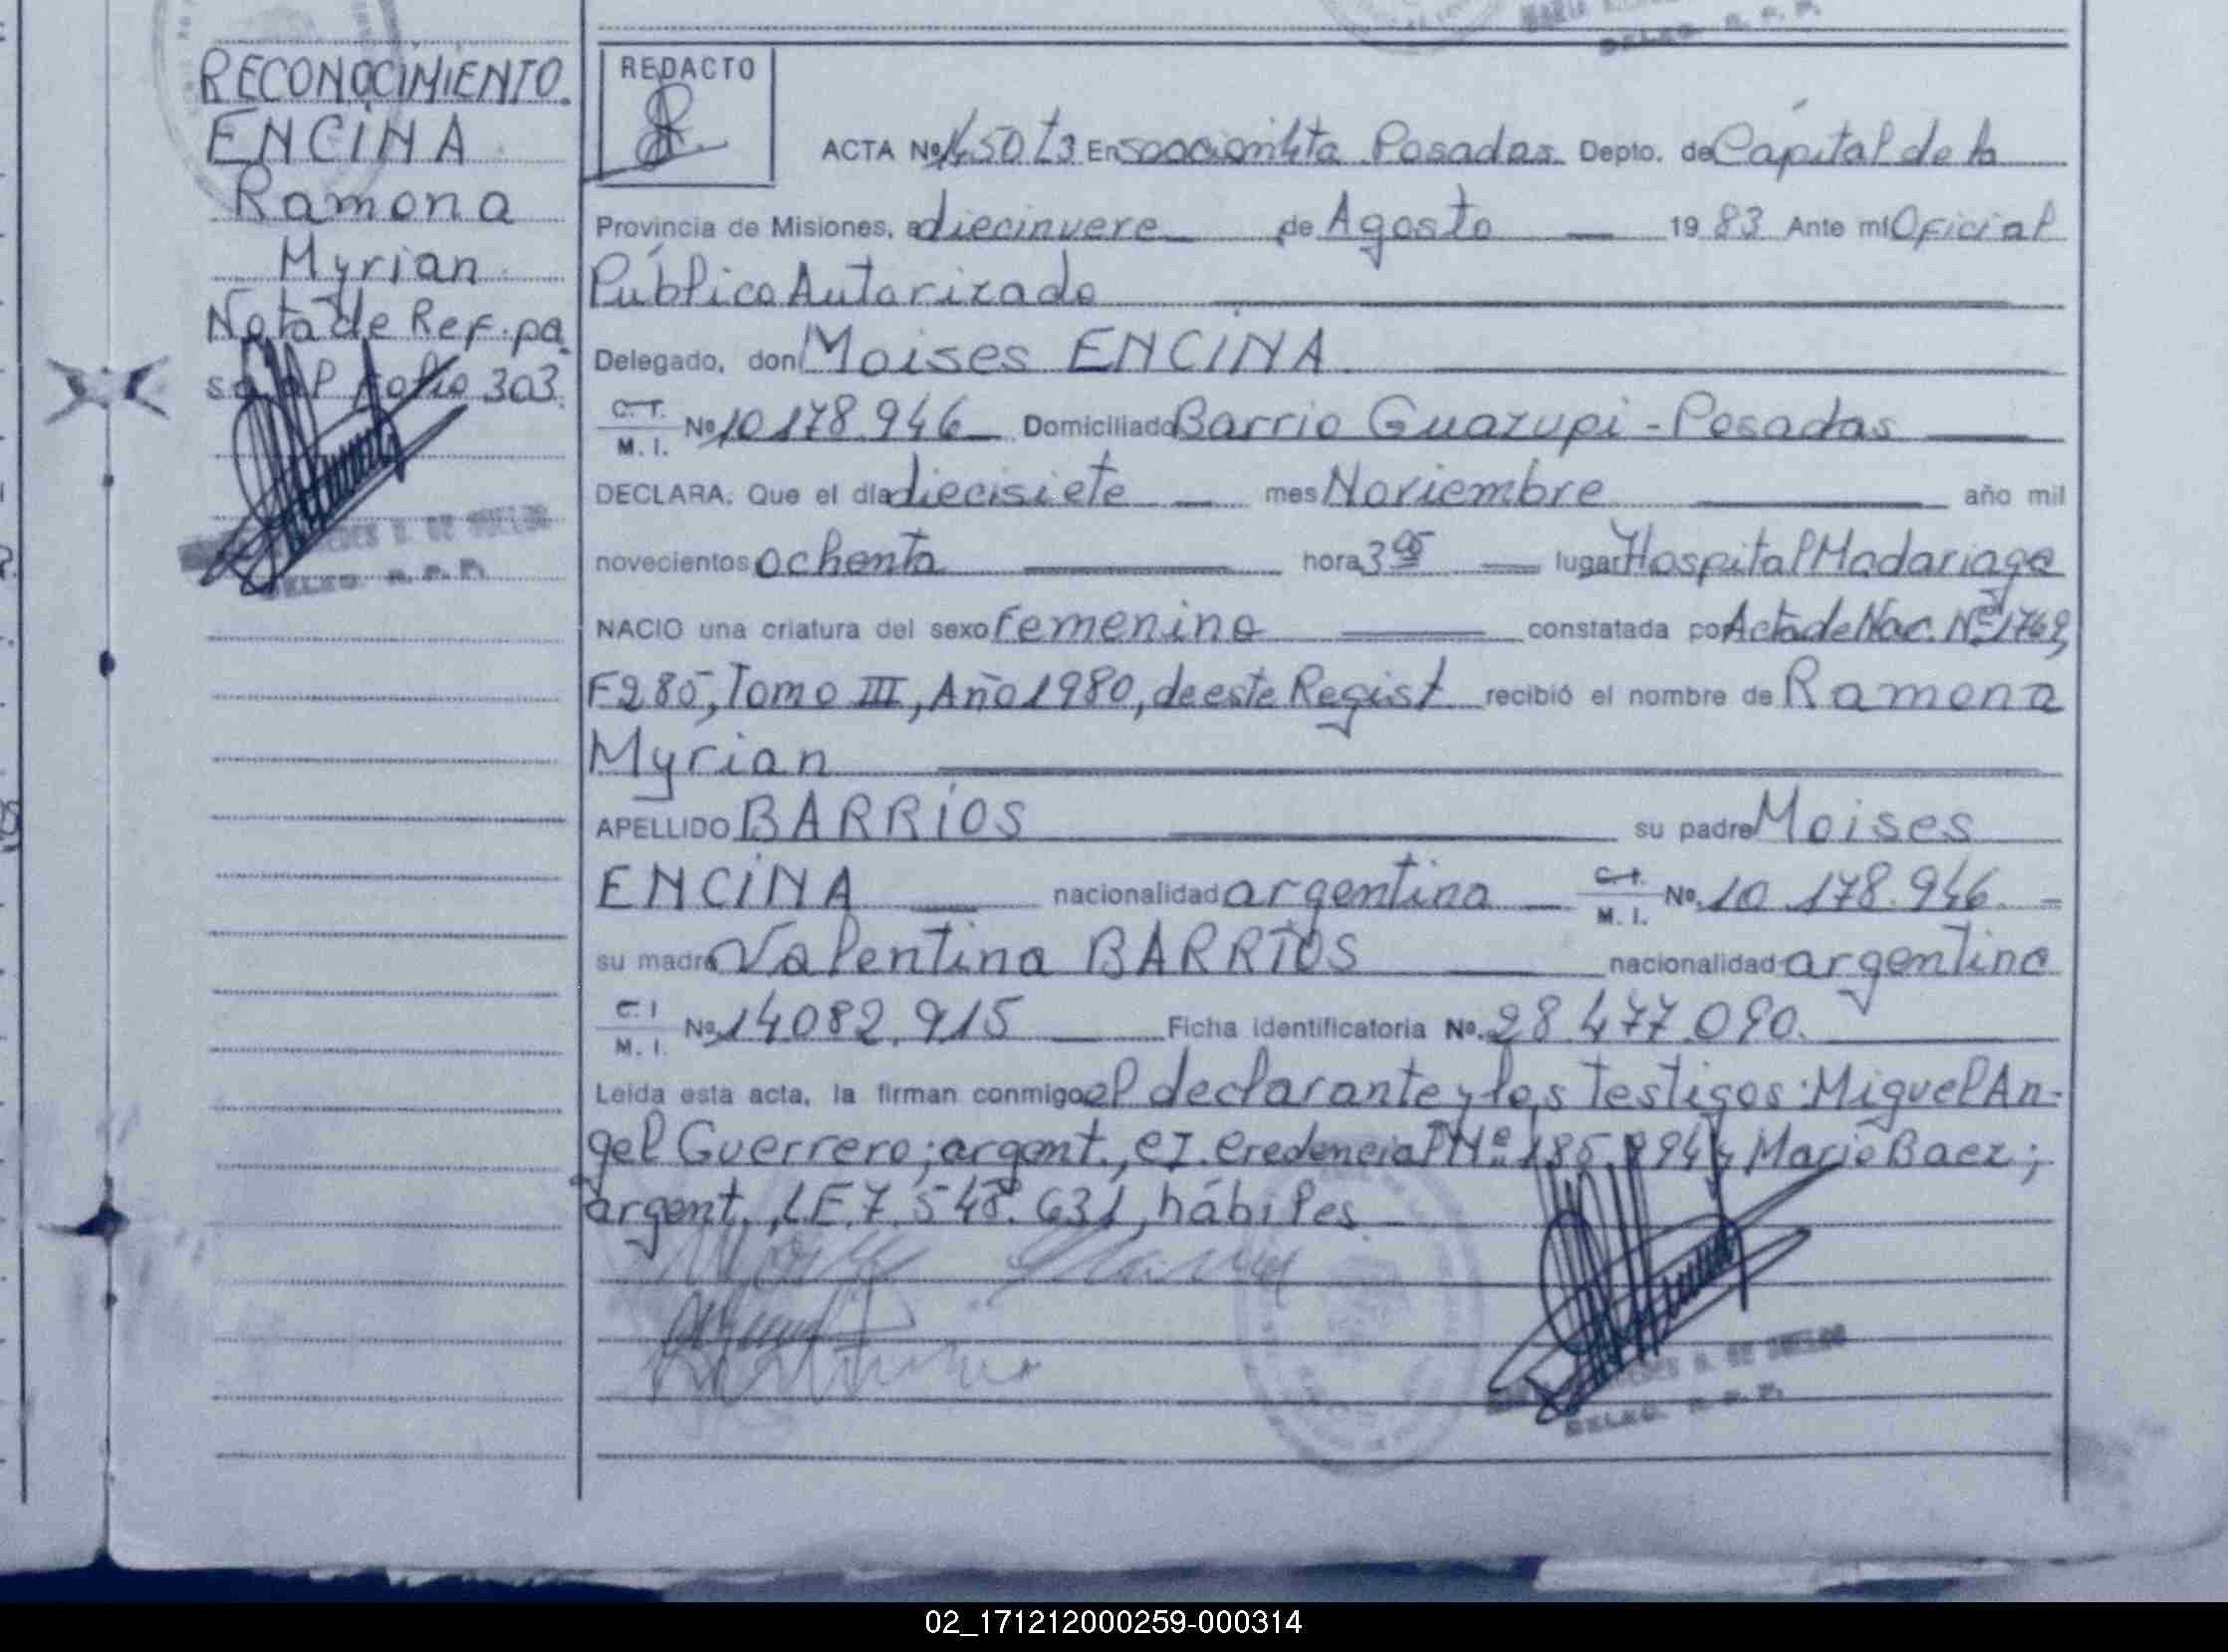 RECONOCIMIENTO.
ENCINA
Ramona
Myrian
Nota de Ref. pa
sa al folio 303.
DELEG. R. P. P.
REDACTO
ACTA Nº 1450 T3 En sección 4ta Posadas Depto. de Capital de la
Provincia de Misiones, a diecinueve de Agosto 1983 Ante mi Oficial
Público Autorizado
Delegado, don Moises ENCINA
C.I. M. I. Nº 10178.946 Domiciliado Barrio Guazupi - Posadas
DECLARA: Que el día diecisiete mes Noviembre año mil
novecientos ochenta hora 3 05 lugar Hospital Madariaga
NACIO una criatura del sexo femenino constatada por Acta de Nac. Nº 1769,
F285, Tomo III, Año 1980, de este Regist recibió el nombre de Ramona
Myrian
APELLIDO BARRIOS su padre Moises
ENCINA nacionalidad argentina C.I. M. I. Nº 10.178.946.
su madre Valentina BARRIOS nacionalidad argentina
C.I. M. I. Nº 14082.915 Ficha identificatoria Nº 28.477.090.
Leída esta acta, la firman conmigo el declarante y los testigos: Miguel An-
gel Guerrero; argent., CI. Credencial Nº Mario Baez;
argent., LE. 7.548.631, hábiles
DELEG. R. P. P.
02_171212000259-000314